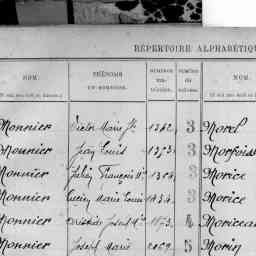 RÉPERTOIRE ALPHABÉTIQU
NOM. PRÉNOMS NUMÉROS NUMÉRO NOM.
OU SURNOMS. du volume.
Monnier Victor Marie Jh 1262 3 Morel
Monnier Jean Louis 1373 3 Morfoiss
Monnier Julien François Mie 1384 3 Morice
Monnier Lucien Marie Louis 1434 3 Morice
Monnier Aristide Joseph Mie 1873 4 Moriceau
Monnier Joseph Marie 2069 5 Morin